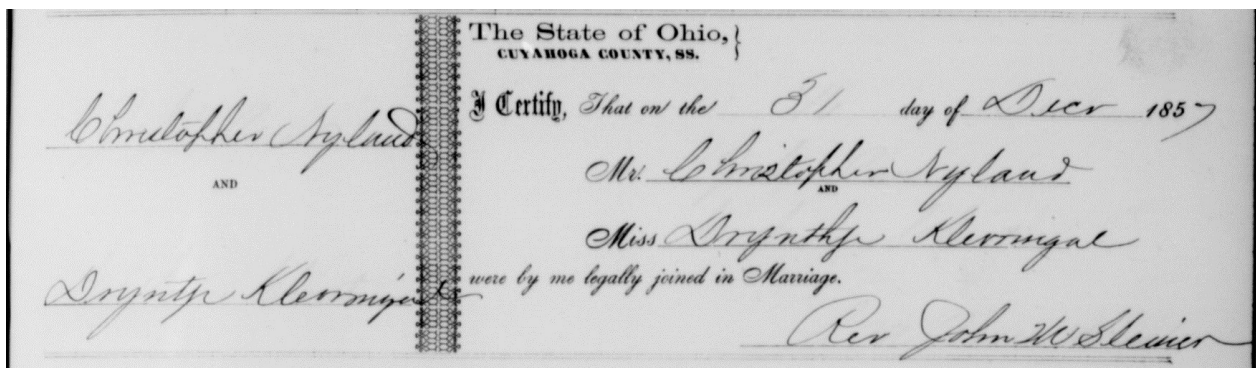 Christopher Nyland
AND
Dryntje Klevringal
The State of Ohio,
CUYAHOGA COUNTY, SS.
I Certify, That on the 31 day of Decr 1857
Mr. Christopher Nyland
AND
Miss Drynthje Klevringal
were by me legally joined in Marriage.
Rev John W Steiner